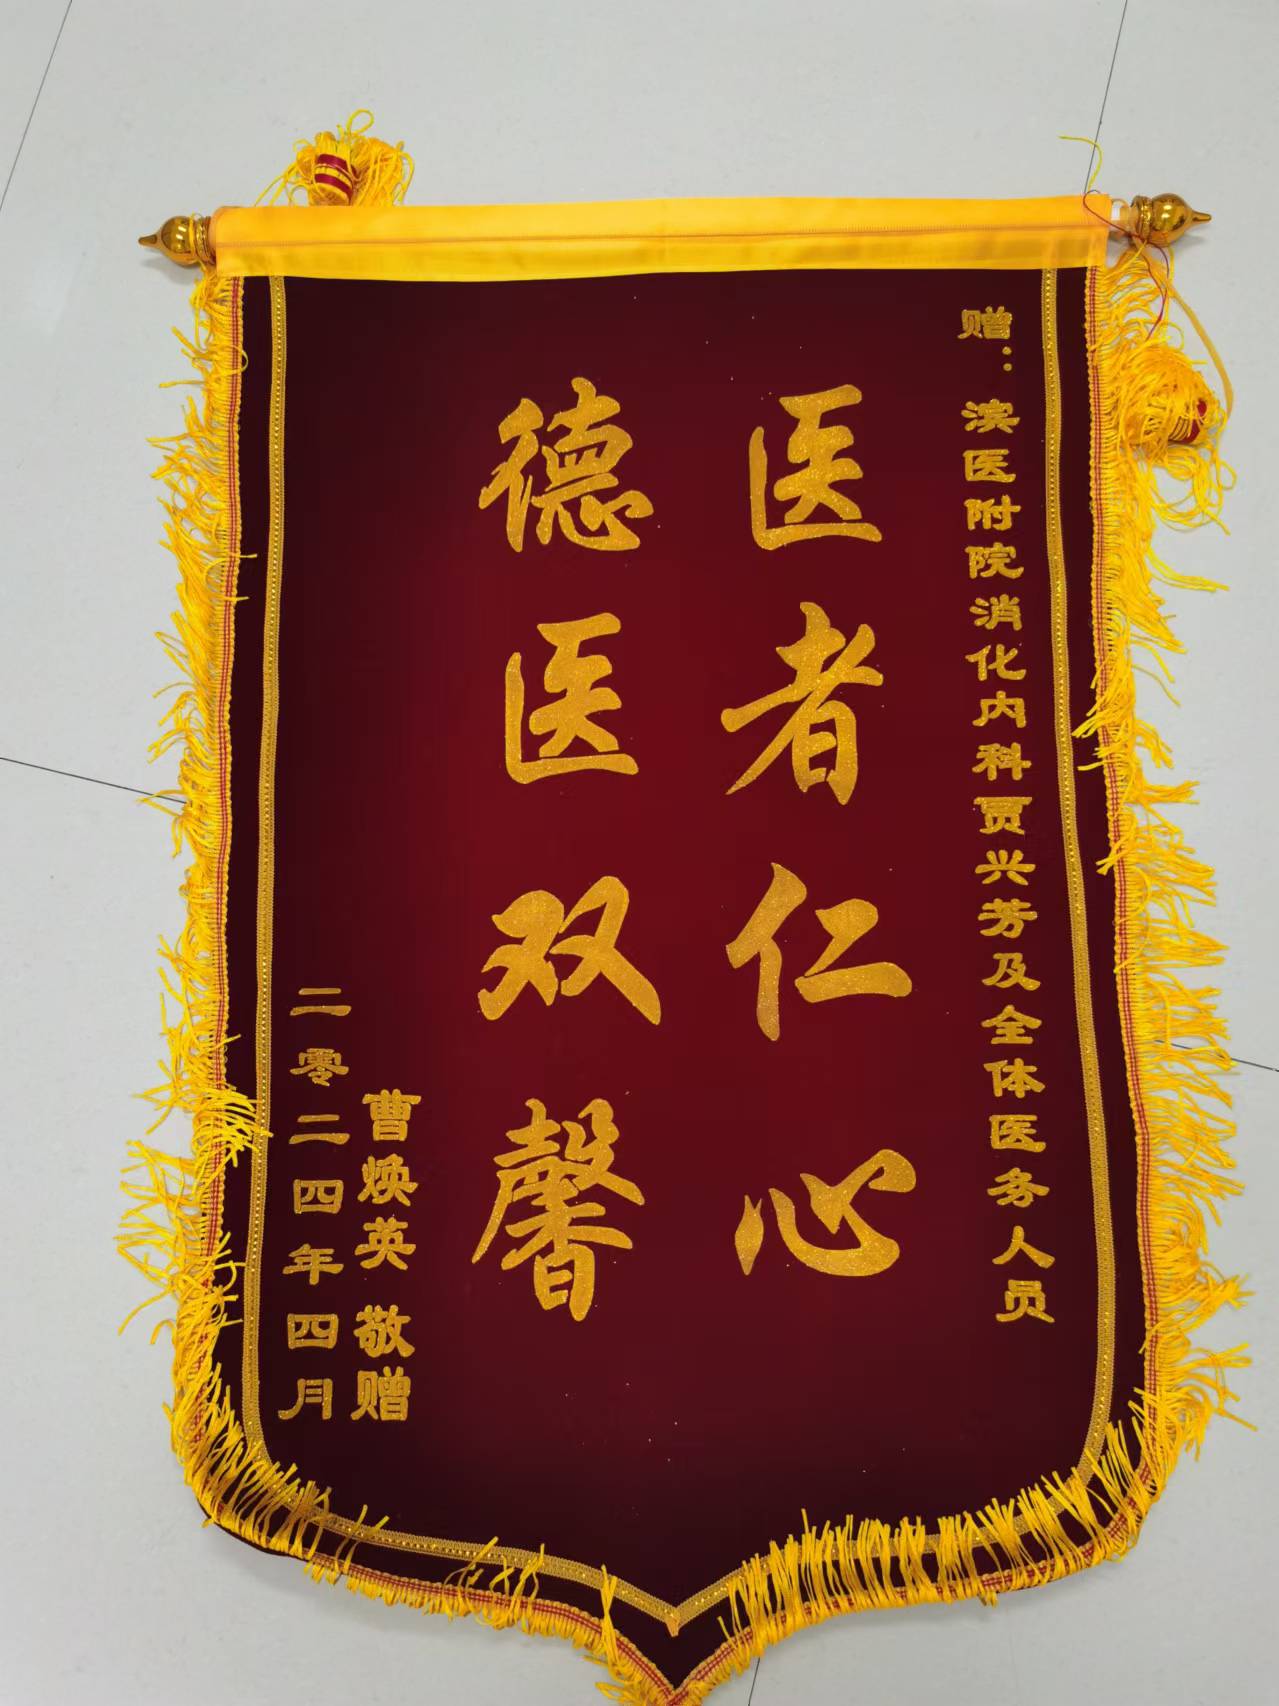 赠：滨医附院消化内科贾兴芳及全体医务人员
医者仁心
德医双馨
曹焕英 敬赠
二零二四年四月